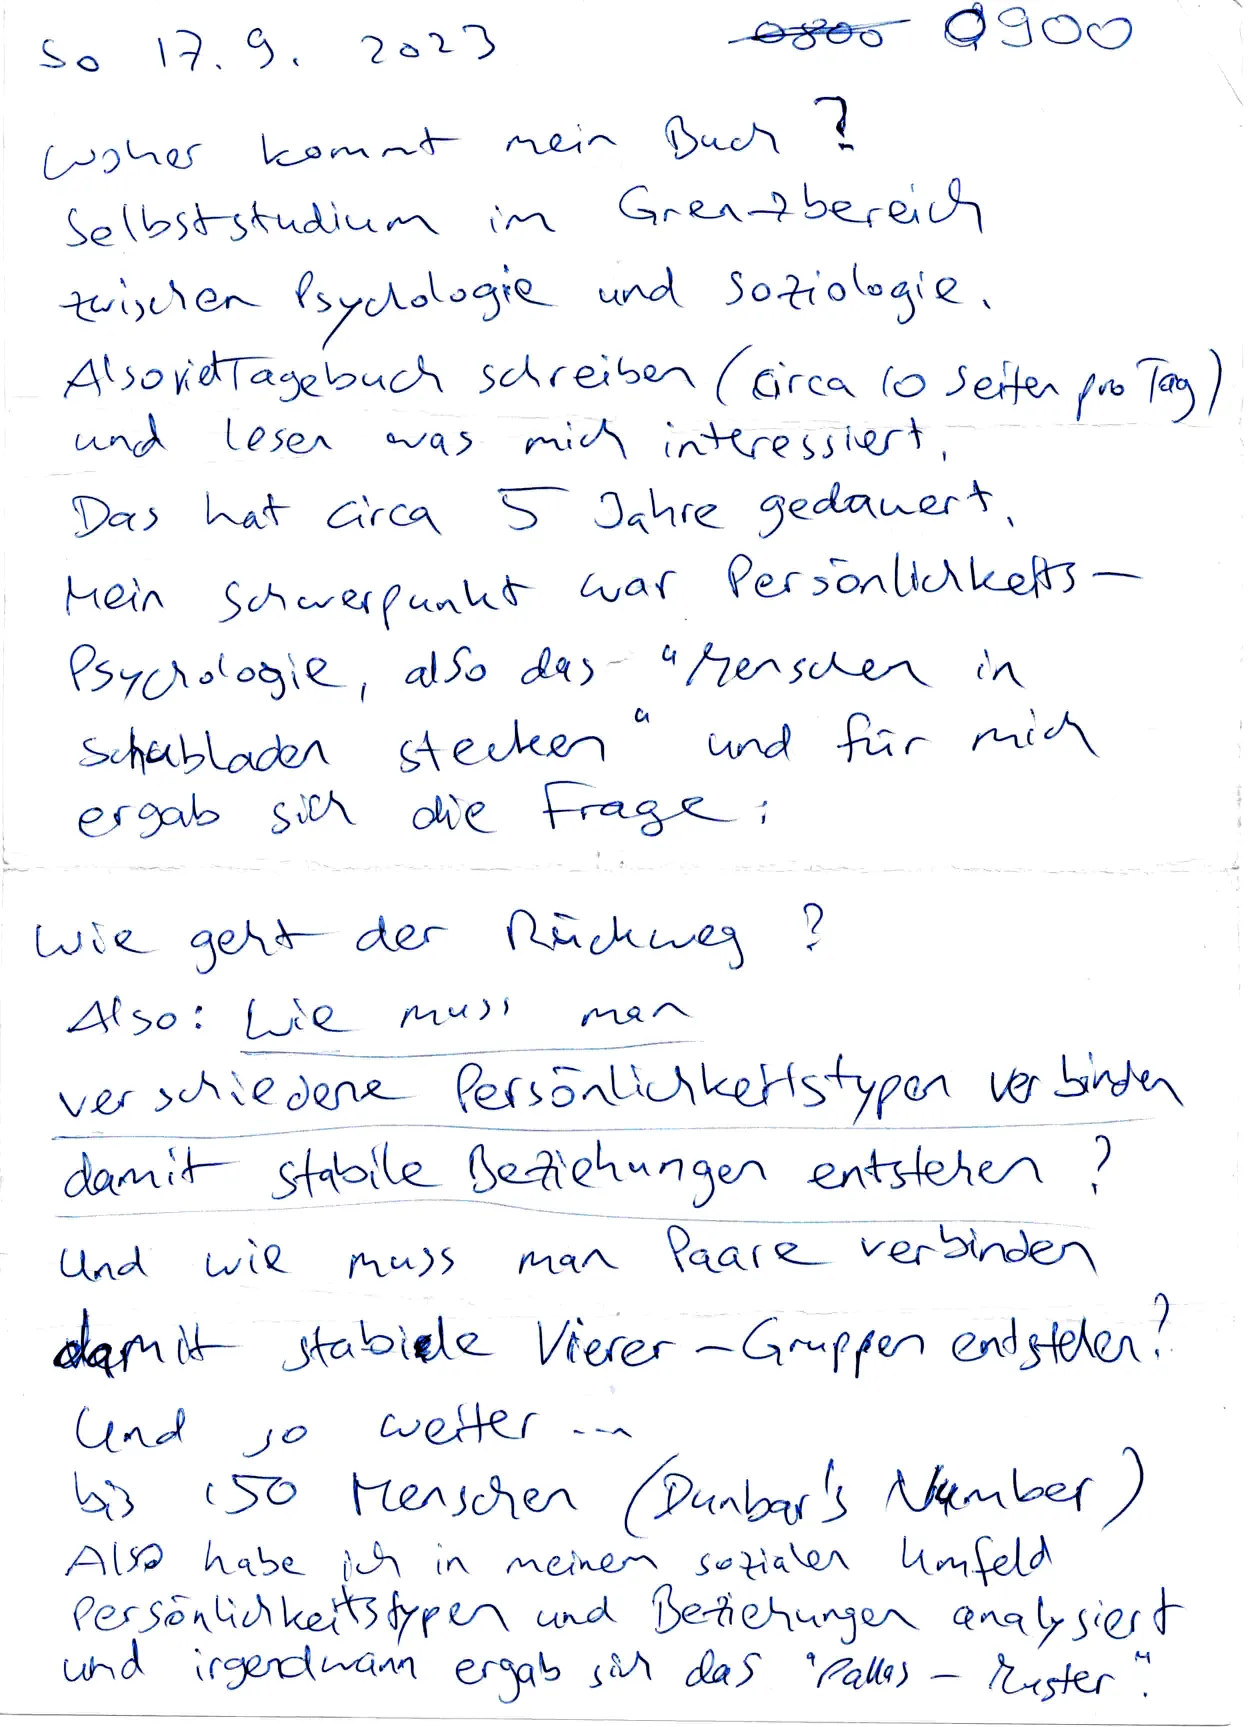 So 17. 9. 2023 0800 0900
Woher kommt mein Buch?
Selbststudium im Grenzbereich
zwischen Psychologie und Soziologie.
Also viel Tagebuch schreiben (circa 10 Seiten pro Tag)
und lesen was mich interessiert.
Das hat circa 5 Jahre gedauert.
Mein Schwerpunkt war Persönlichkeits-
Psychologie, also das "Menschen in
Schubladen stecken" und für mich
ergab sich die Frage:
Wie geht der Rückweg?
Also: Wie muss man
verschiedene Persönlichkeitstypen verbinden
damit stabile Beziehungen entstehen?
Und wie muss man Paare verbinden
damit stabile Vierer-Gruppen entstehen?
Und so weiter ...
bis 150 Menschen (Dunbar's Number)
Also habe ich in meinem sozialen Umfeld
Persönlichkeitstypen und Beziehungen analysiert
und irgendwann ergab sich das "Pallas-Muster".